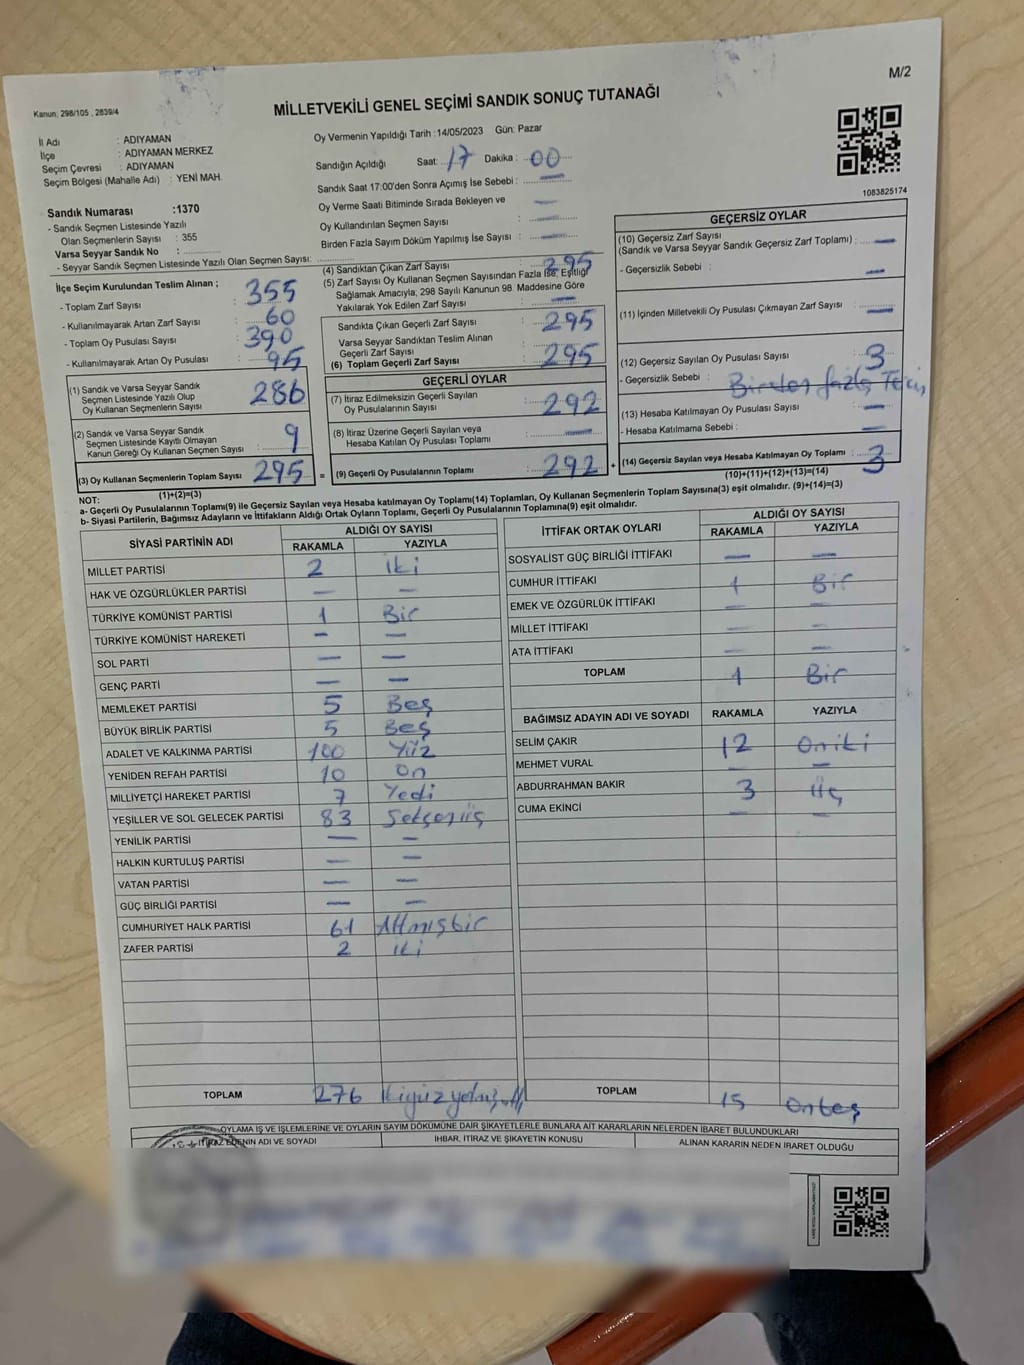 M/2
Kanun; 298/105 , 2839/4
MİLLETVEKİLİ GENEL SEÇİMİ SANDIK SONUÇ TUTANAĞI
İl Adı : ADIYAMAN
İlçe : ADIYAMAN MERKEZ
Seçim Çevresi : ADIYAMAN
Seçim Bölgesi (Mahalle Adı) : YENİ MAH.
Sandık Numarası :1370
- Sandık Seçmen Listesinde Yazılı
Olan Seçmenlerin Sayısı : 355
Varsa Seyyar Sandık No :
- Seyyar Sandık Seçmen Listesinde Yazılı Olan Seçmen Sayısı:
Oy Vermenin Yapıldığı Tarih :14/05/2023 Gün: Pazar
Sandığın Açıldığı Saat: 17 Dakika : 00
Sandık Saat 17:00'den Sonra Açımış İse Sebebi : —
Oy Verme Saati Bitiminde Sırada Bekleyen ve
Oy Kullandırılan Seçmen Sayısı : —
Birden Fazla Sayım Döküm Yapılmış İse Sayısı : —
1083825174
İlçe Seçim Kurulundan Teslim Alınan ;
- Toplam Zarf Sayısı : 355
- Kullanılmayarak Artan Zarf Sayısı : 60
- Toplam Oy Pusulası Sayısı : 390
- Kullanılmayarak Artan Oy Pusulası : 95
(1) Sandık ve Varsa Seyyar Sandık
Seçmen Listesinde Yazılı Olup
Oy Kullanan Seçmenlerin Sayısı : 286
(2) Sandık ve Varsa Seyyar Sandık
Seçmen Listesinde Kayıtlı Olmayan
Kanun Gereği Oy Kullanan Seçmen Sayısı : 9
(3) Oy Kullanan Seçmenlerin Toplam Sayısı : 295
(1)+(2)=(3)
(4) Sandıktan Çıkan Zarf Sayısı : 295
(5) Zarf Sayısı Oy Kullanan Seçmen Sayısından Fazla İse, Eşitliği
Sağlamak Amacıyla; 298 Sayılı Kanunun 98. Maddesine Göre
Yakılarak Yok Edilen Zarf Sayısı : —
Sandıkta Çıkan Geçerli Zarf Sayısı : 295
Varsa Seyyar Sandıktan Teslim Alınan
Geçerli Zarf Sayısı :
(6) Toplam Geçerli Zarf Sayısı : 295
GEÇERLİ OYLAR
(7) İtiraz Edilmeksizin Geçerli Sayılan
Oy Pusulalarının Sayısı : 292
(8) İtiraz Üzerine Geçerli Sayılan veya
Hesaba Katılan Oy Pusulası Toplamı : —
= (9) Geçerli Oy Pusulalarının Toplamı : 292 +
GEÇERSİZ OYLAR
(10) Geçersiz Zarf Sayısı
(Sandık ve Varsa Seyyar Sandık Geçersiz Zarf Toplamı) : —
- Geçersizlik Sebebi : —
(11) İçinden Milletvekili Oy Pusulası Çıkmayan Zarf Sayısı : —
(12) Geçersiz Sayılan Oy Pusulası Sayısı : 3
- Geçersizlik Sebebi : Birden fazla Tercih
(13) Hesaba Katılmayan Oy Pusulası Sayısı : —
- Hesaba Katılmama Sebebi : —
(14) Geçersiz Sayılan veya Hesaba Katılmayan Oy Toplamı : 3
(10)+(11)+(12)+(13)=(14)
NOT:
a- Geçerli Oy Pusulalarının Toplamı(9) ile Geçersiz Sayılan veya Hesaba katılmayan Oy Toplamı(14) Toplamları, Oy Kullanan Seçmenlerin Toplam Sayısına(3) eşit olmalıdır. (9)+(14)=(3)
b- Siyasi Partilerin, Bağımsız Adayların ve İttifakların Aldığı Ortak Oyların Toplamı, Geçerli Oy Pusulalarının Toplamına(9) eşit olmalıdır.
SİYASİ PARTİNİN ADI ALDIĞI OY SAYISI
RAKAMLA YAZIYLA
MİLLET PARTİSİ 2 iki
HAK VE ÖZGÜRLÜKLER PARTİSİ — —
TÜRKİYE KOMÜNİST PARTİSİ 1 Bir
TÜRKİYE KOMÜNİST HAREKETİ — —
SOL PARTİ — —
GENÇ PARTİ — —
MEMLEKET PARTİSİ 5 Beş
BÜYÜK BİRLİK PARTİSİ 5 Beş
ADALET VE KALKINMA PARTİSİ 100 Yüz
YENİDEN REFAH PARTİSİ 10 On
MİLLİYETÇİ HAREKET PARTİSİ 7 Yedi
YEŞİLLER VE SOL GELECEK PARTİSİ 83 Seksenüç
YENİLİK PARTİSİ — —
HALKIN KURTULUŞ PARTİSİ — —
VATAN PARTİSİ — —
GÜÇ BİRLİĞİ PARTİSİ — —
CUMHURİYET HALK PARTİSİ 61 Altmışbir
ZAFER PARTİSİ 2 iki
TOPLAM 276
İTTİFAK ORTAK OYLARI ALDIĞI OY SAYISI
RAKAMLA YAZIYLA
SOSYALİST GÜÇ BİRLİĞİ İTTİFAKI — —
CUMHUR İTTİFAKI 1 Bir
EMEK VE ÖZGÜRLÜK İTTİFAKI — —
MİLLET İTTİFAKI — —
ATA İTTİFAKI — —
TOPLAM 1 Bir
BAĞIMSIZ ADAYIN ADI VE SOYADI RAKAMLA YAZIYLA
SELİM ÇAKIR 12 Oniki
MEHMET VURAL — —
ABDURRAHMAN BAKIR 3 üç
CUMA EKİNCİ — —
TOPLAM 15 onbeş
OYLAMA İŞ VE İŞLEMLERİNE VE OYLARIN SAYIM DÖKÜMÜNE DAİR ŞİKAYETLERLE BUNLARA AİT KARARLARIN NELERDEN İBARET BULUNDUKLARI
İTİRAZ EDENİN ADI VE SOYADI İHBAR, İTİRAZ VE ŞİKAYETİN KONUSU ALINAN KARARIN NEDEN İBARET OLDUĞU